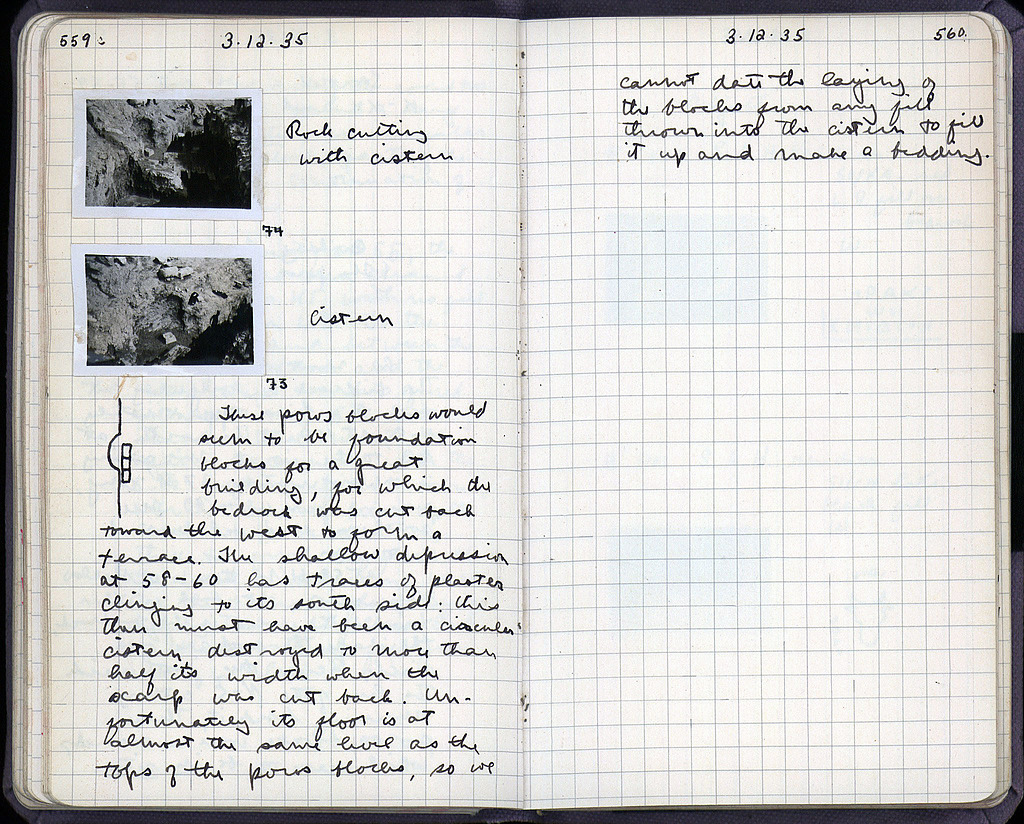 559
3·12·35
Rock cutting
with cistern
74
Cistern
73
These poros blocks would
seem to be foundation
blocks for a great
building, for which the
bedrock was cut back
toward the west to form a
terrace. The shallow depression
at 58-60 has traces of plaster
clinging to its south side: this
then must have been a circular
cistern destroyed to more than
half its width when the
scarp was cut back. Un-
fortunately its floor is at
almost the same level as the
tops of the poros blocks, so we
3·12·35
560.
cannot date the laying of
the blocks from any fill
thrown into the cistern to fill
it up and make a bedding.